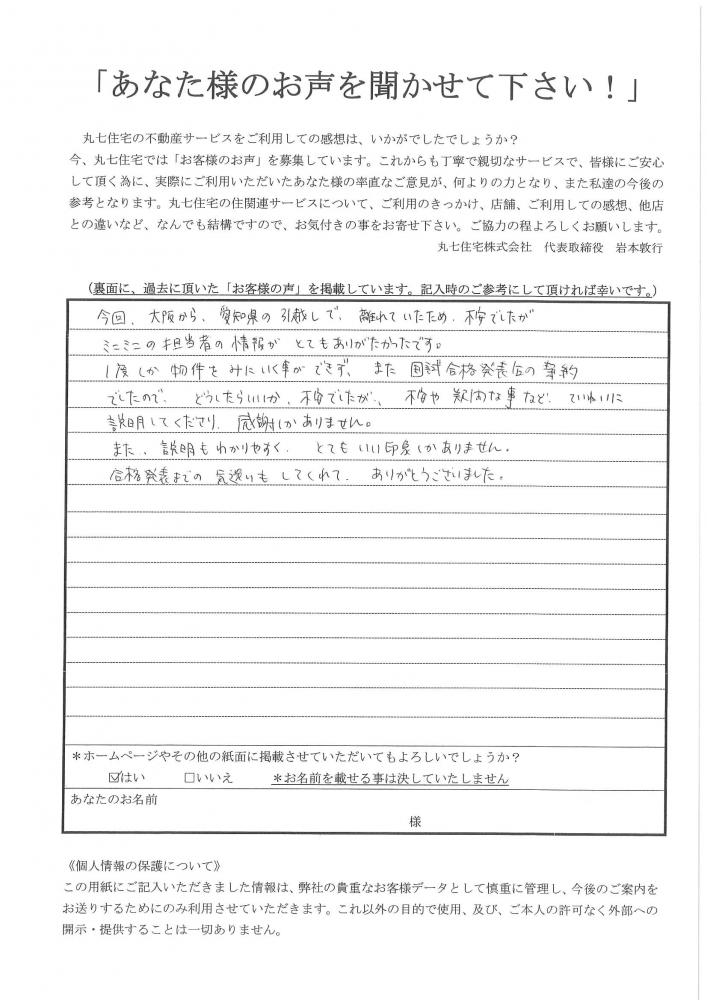 「あなた様のお声を聞かせて下さい！」
丸七住宅の不動産サービスをご利用しての感想は、いかがでしたでしょうか？
今、丸七住宅では「お客様のお声」を募集しています。これからも丁寧で親切なサービスで、皆様にご安心
して頂く為に、実際にご利用いただいたあなた様の率直なご意見が、何よりの力となり、また私達の今後の
参考となります。丸七住宅の住関連サービスについて、ご利用のきっかけ、店舗、ご利用しての感想、他店
との違いなど、なんでも結構ですので、お気付きの事をお寄せ下さい。ご協力の程よろしくお願いします。
丸七住宅株式会社　代表取締役　岩本敦行
（裏面に、過去に頂いた「お客様の声」を掲載しています。記入時のご参考にして頂ければ幸いです。）
今回、大阪から、愛知県の引越しで、離れていたため、不安でしたが
ミニミニの担当者の情報が とてもありがたかったです。
1度しか物件をみにいく事ができず、また 国試合格発表前の契約
でしたので、どうしたらいいか、不安でしたが、不安や疑問な事など、ていねいに
説明してくださり、感謝しかありません。
また、説明もわかりやすく、とてもいい印象しかありません。
合格発表までの 気遣いも してくれて、ありがとうございました。
＊ホームページやその他の紙面に掲載させていただいてもよろしいでしょうか？
☑はい　□いいえ　＊お名前を載せる事は決していたしません
あなたのお名前
様
《個人情報の保護について》
この用紙にご記入いただきました情報は、弊社の貴重なお客様データとして慎重に管理し、今後のご案内を
お送りするためにのみ利用させていただきます。これ以外の目的で使用、及び、ご本人の許可なく外部への
開示・提供することは一切ありません。